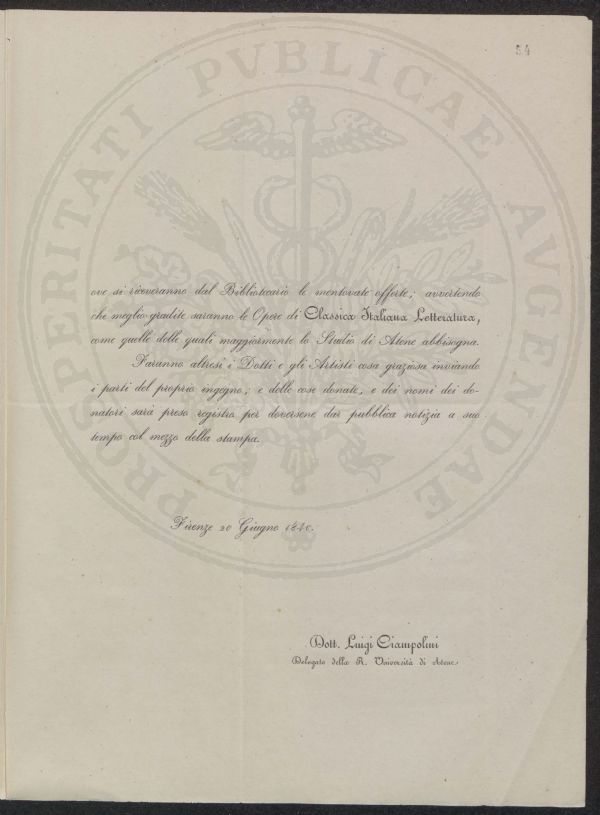 54
PROSPERITATI PUBLICAE AUGENDAE
ove si riceveranno dal Bibliotecario le mentovate offerte; avvertendo
che meglio gradite saranno le Opere di Classica Italiana Letteratura,
come quelle delle quali maggiormente lo Studio di Atene abbisogna.
Faranno altresì i Dotti e gli Artisti cosa graziosa inviando
i parti del proprio ingegno; e delle cose donate, e dei nomi dei do-
natori sarà preso registro per doversene dar pubblica notizia a suo
tempo col mezzo della stampa.
Firenze 20 Giugno 1840.
Dott. Luigi Ciampolini
Delegato della R. Università di Atene